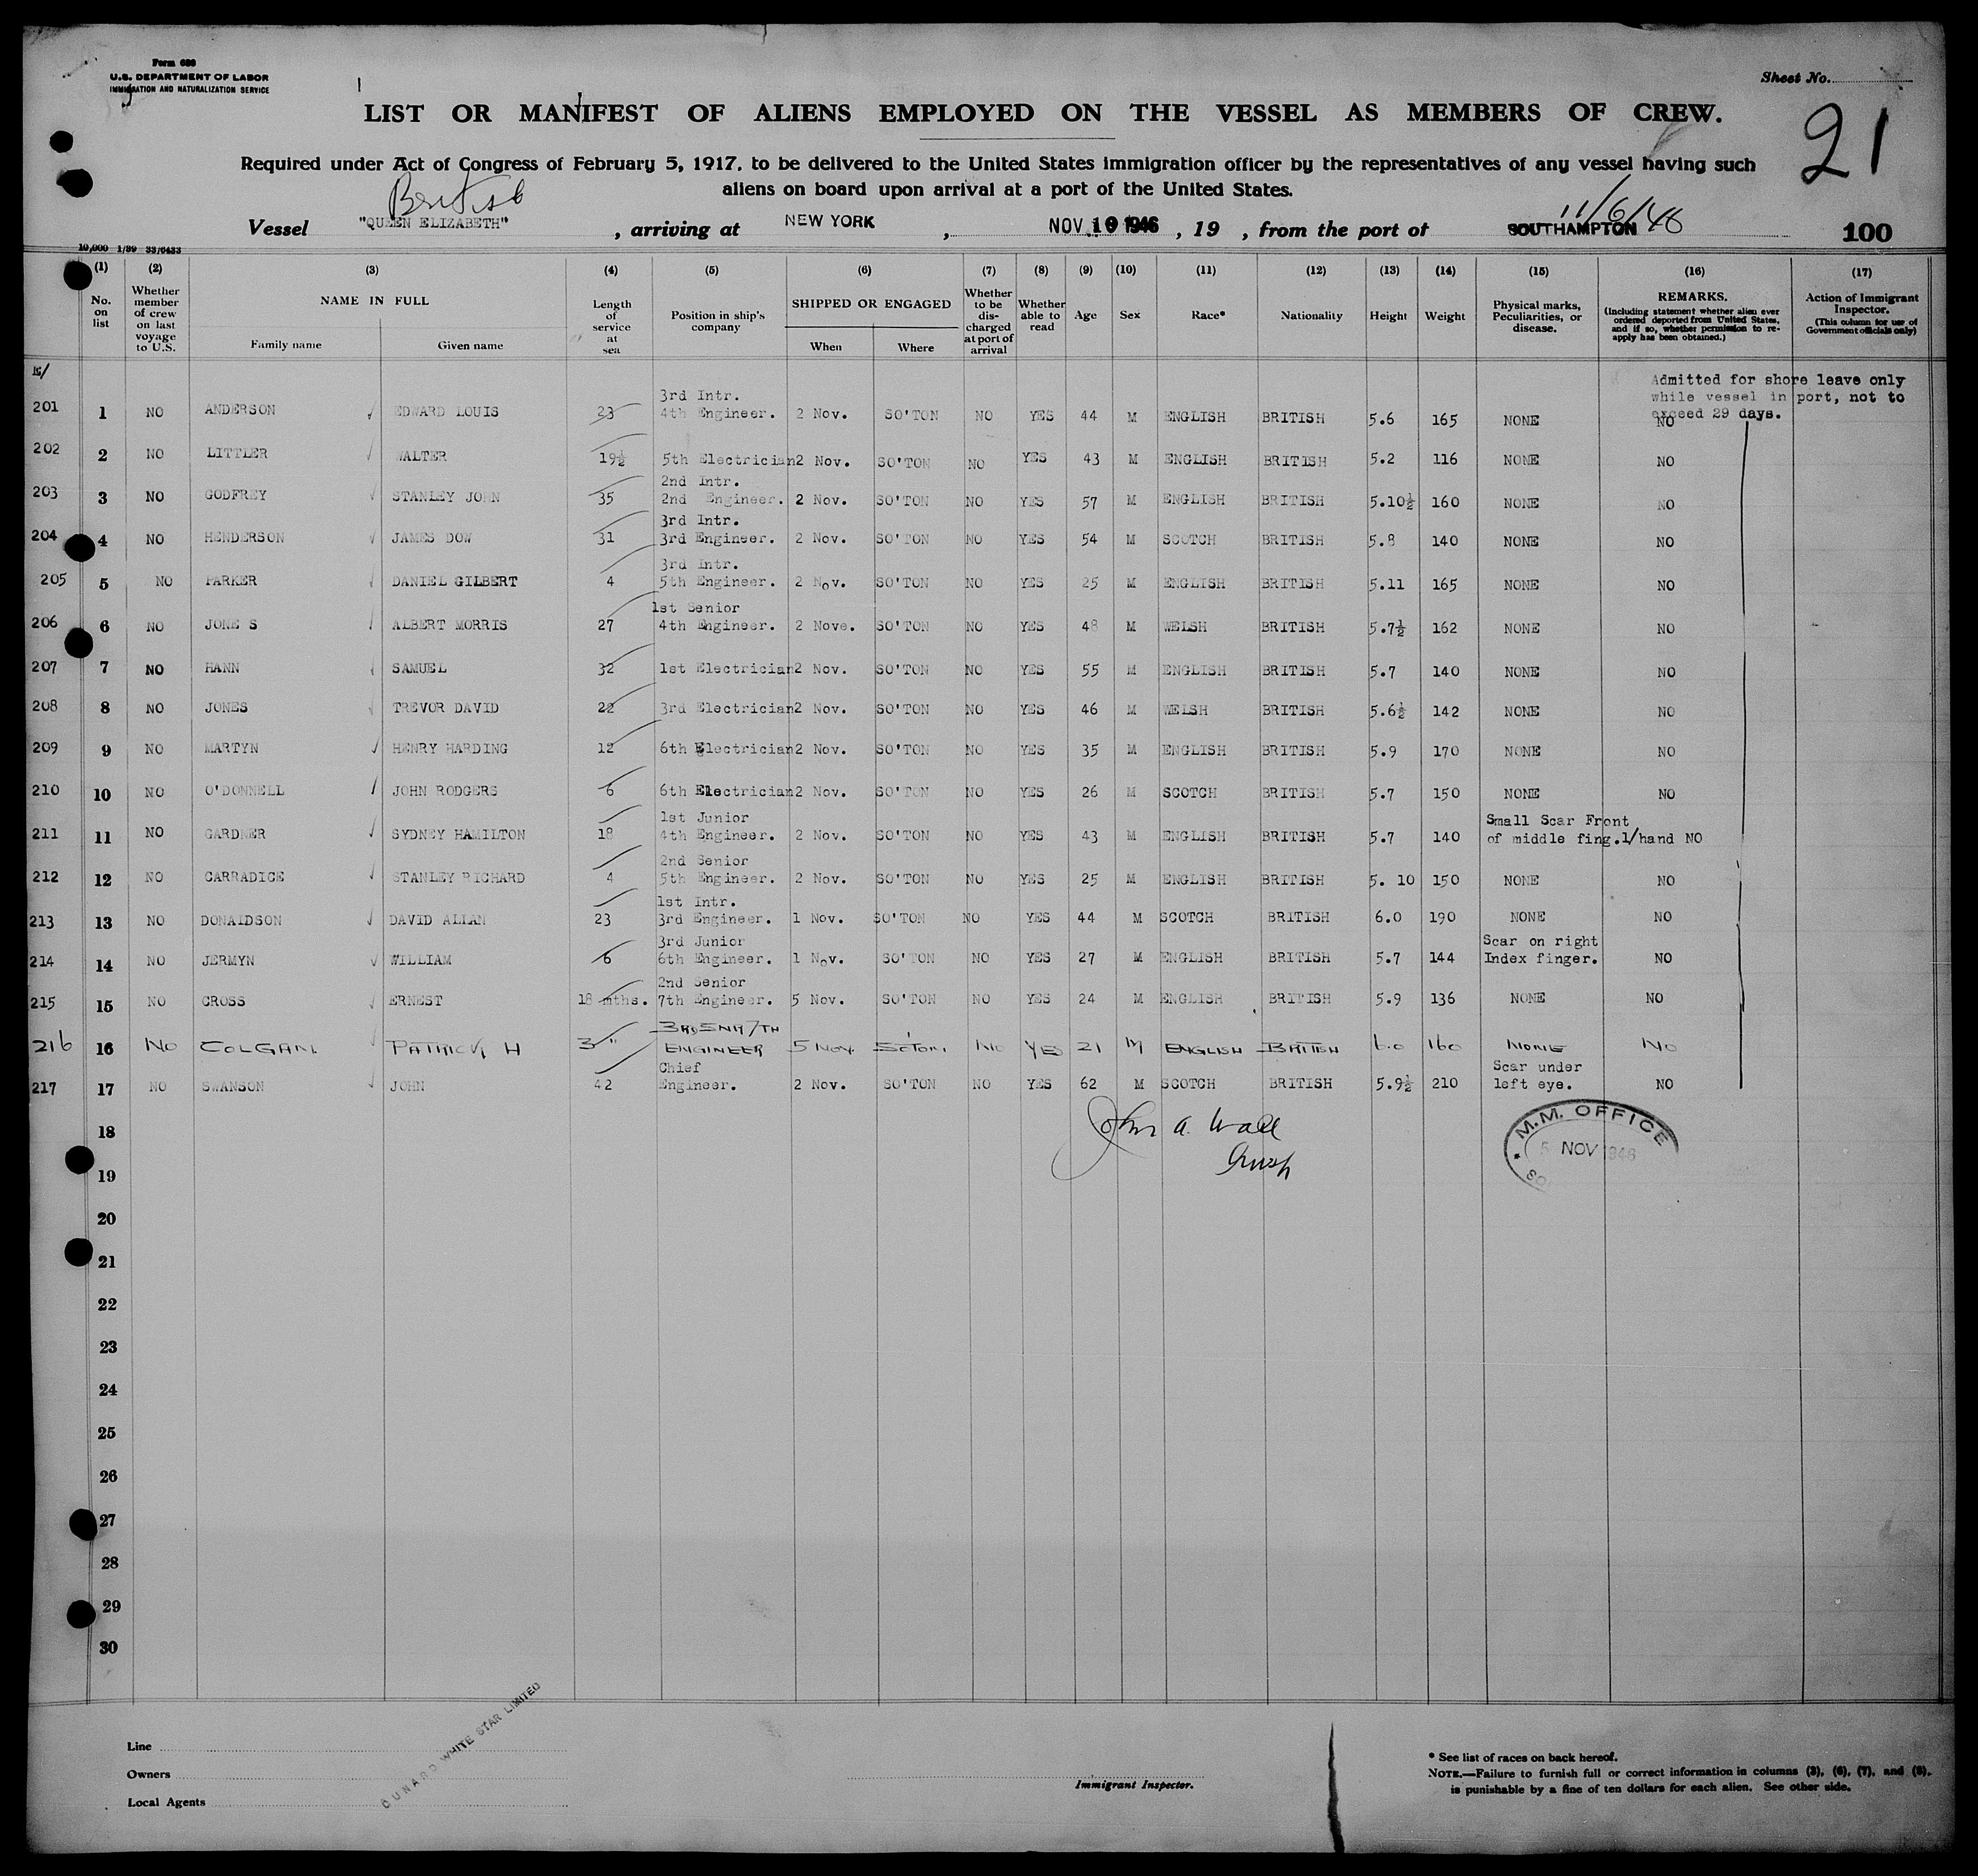 Form 689
U.S. DEPARTMENT OF LABOR
IMMIGRATION AND NATURALIZATION SERVICE
Sheet No.
LIST OR MANIFEST OF ALIENS EMPLOYED ON THE VESSEL AS MEMBERS OF CREW.
21
Required under Act of Congress of February 5, 1917, to be delivered to the United States immigration officer by the representatives of any vessel having such
aliens on board upon arrival at a port of the United States.
British
11/6/46
Vessel "QUEEN ELIZABETH", arriving at NEW YORK, NOV 10 1946, 19 , from the port of SOUTHAMPTON 100
10,000 1/39 33/6433
(1) (2) (3) (4) (5) (6) (7) (8) (9) (10) (11) (12) (13) (14) (15) (16) (17)
No. on list
Whether member of crew on last voyage to U.S.
NAME IN FULL
Family name Given name
Length of service at sea
Position in ship's company
SHIPPED OR ENGAGED
When Where
Whether to be discharged at port of arrival
Whether able to read
Age
Sex
Race*
Nationality
Height
Weight
Physical marks, Peculiarities, or disease.
REMARKS.
(Including statement whether alien ever ordered deported from United States, and if so, whether permission to re-apply has been obtained.)
Action of Immigrant Inspector.
(This column for use of Government officials only)
E/
Admitted for shore leave only
while vessel in port, not to
exceed 29 days.
3rd Intr.
201 1 NO ANDERSON EDWARD LOUIS 23 4th Engineer. 2 Nov. SO'TON NO YES 44 M ENGLISH BRITISH 5.6 165 NONE NO
202 2 NO LITTLER WALTER 19½ 5th Electrician 2 Nov. SO'TON NO YES 43 M ENGLISH BRITISH 5.2 116 NONE NO
2nd Intr.
203 3 NO GODFREY STANLEY JOHN 35 2nd Engineer. 2 Nov. SO'TON NO YES 57 M ENGLISH BRITISH 5.10½ 160 NONE NO
3rd Intr.
204 4 NO HENDERSON JAMES DOW 31 3rd Engineer. 2 Nov. SO'TON NO YES 54 M SCOTCH BRITISH 5.8 140 NONE NO
3rd Intr.
205 5 NO PARKER DANIEL GILBERT 4 5th Engineer. 2 Nov. SO'TON NO YES 25 M ENGLISH BRITISH 5.11 165 NONE NO
1st Senior
206 6 NO JONE S ALBERT MORRIS 27 4th Engineer. 2 Nove. SO'TON NO YES 48 M WELSH BRITISH 5.7½ 162 NONE NO
207 7 NO HANN SAMUEL 32 1st Electrician 2 Nov. SO'TON NO YES 55 M ENGLISH BRITISH 5.7 140 NONE NO
208 8 NO JONES TREVOR DAVID 22 3rd Electrician 2 Nov. SO'TON NO YES 46 M WELSH BRITISH 5.6½ 142 NONE NO
209 9 NO MARTYN HENRY HARDING 12 6th Electrician 2 Nov. SO'TON NO YES 35 M ENGLISH BRITISH 5.9 170 NONE NO
210 10 NO O'DONNELL JOHN RODGERS 6 6th Electrician 2 Nov. SO'TON NO YES 26 M SCOTCH BRITISH 5.7 150 NONE NO
1st Junior Small Scar Front
211 11 NO GARDNER SYDNEY HAMILTON 18 4th Engineer. 2 Nov. SO'TON NO YES 43 M ENGLISH BRITISH 5.7 140 of middle fing.l/hand NO
2nd Senior
212 12 NO CARRADICE STANLEY RICHARD 4 5th Engineer. 2 Nov. SO'TON NO YES 25 M ENGLISH BRITISH 5. 10 150 NONE NO
1st Intr.
213 13 NO DONALDSON DAVID ALLAN 23 3rd Engineer. 1 Nov. SO'TON NO YES 44 M SCOTCH BRITISH 6.0 190 NONE NO
3rd Junior Scar on right
214 14 NO JERMYN WILLIAM 6 6th Engineer. 1 Nov. SO'TON NO YES 27 M ENGLISH BRITISH 5.7 144 Index finger. NO
2nd Senior
215 15 NO CROSS ERNEST 18 mths. 7th Engineer. 5 Nov. SO'TON NO YES 24 M ENGLISH BRITISH 5.9 136 NONE NO
3RD SNR 7TH
216 16 NO COLGAN PATRICK H 3 " ENGINEER 5 NOV. SO'TON NO YES 21 M ENGLISH BRITISH 6.0 160 NONE NO
Chief Scar under
217 17 NO SWANSON JOHN 42 Engineer. 2 Nov. SO'TON NO YES 62 M SCOTCH BRITISH 5.9½ 210 left eye. NO
John A. Wall
18
M.M. OFFICE
5 NOV 1946
19
20
21
22
23
24
25
26
27
28
29
30
CUNARD WHITE STAR LIMITED
Line
Owners
Local Agents
Immigrant Inspector.
* See list of races on back hereof.
NOTE.—Failure to furnish full or correct information in columns (3), (6), (7), and (8),
is punishable by a fine of ten dollars for each alien. See other side.